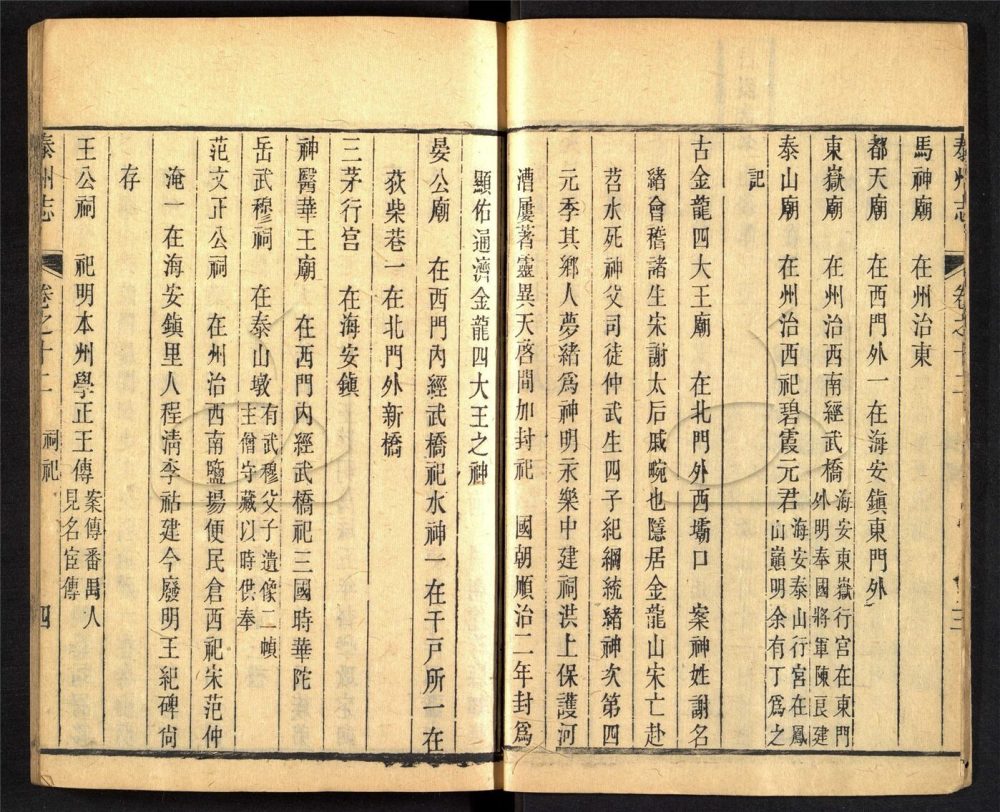 泰州志 卷之十二
馬神廟 在州治東
都天廟 在西門外一在海安鎮東門外
東嶽廟 在州治西南經武橋 海安東嶽行宮在東門
外明奉國將軍陳良建
泰山廟 在州治西祀碧霞元君 海安泰山行宮在鳳
山巔明余有丁爲之
記
古金龍四大王廟 在北門外西壩口 案神姓謝名
緒會稽諸生宋謝太后戚畹也隱居金龍山宋亡赴
苕水死神父司徒仲武生四子紀綱統緒緒神次第四
元季其鄉人夢緒爲神明永樂中建祠洪上保護河
漕屢著靈異天啓間加封祀 國朝順治二年封爲
顯佑通濟金龍四大王之神
晏公廟 在西門內經武橋祀水神一在千戸所一在
荻柴巷一在北門外新橋
三茅行宮 在海安鎮
神醫華王廟 在西門內經武橋祀三國時華陀
岳武穆祠 在泰山墩 有武穆父子遺像二幀
主僧守藏以時供奉
范文正公祠 在州治西南鹽場便民倉西祀宋范仲
淹一在海安鎮里人程淸李祜建今廢明王紀碑尙
存
王公祠 祀明本州學正王傳 案傳番禺人
見名宦傳
泰州志 卷之十二 祠祀 四